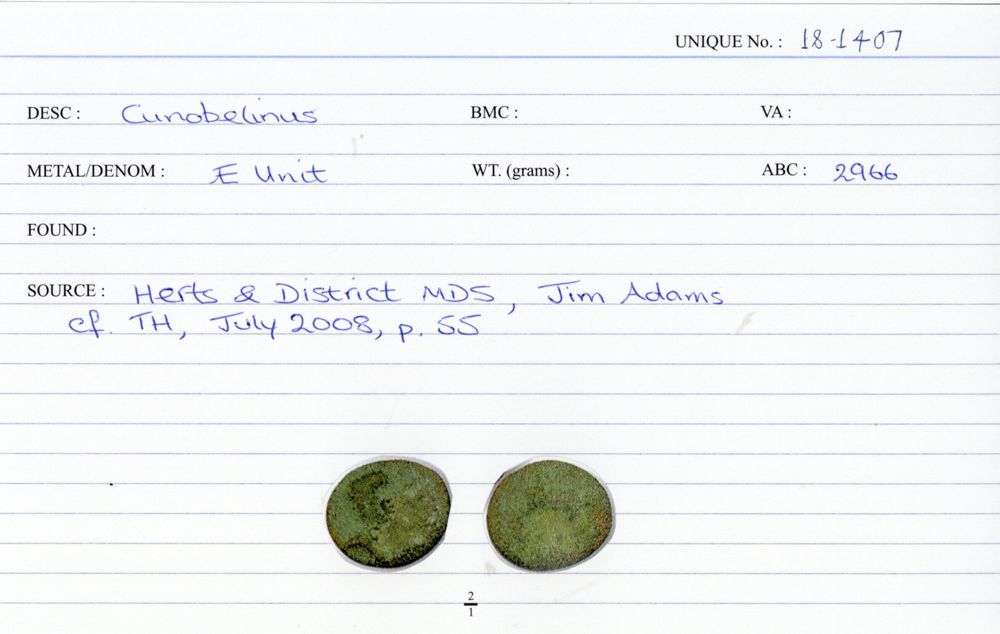 UNIQUE No. : 18-1407
DESC : Cunobelinus BMC : VA :
METAL/DENOM : Æ Unit WT. (grams) : ABC : 2966
FOUND :
SOURCE : Herts & District MDS, Jim Adams
cf. TH, July 2008, p. 55
2
1